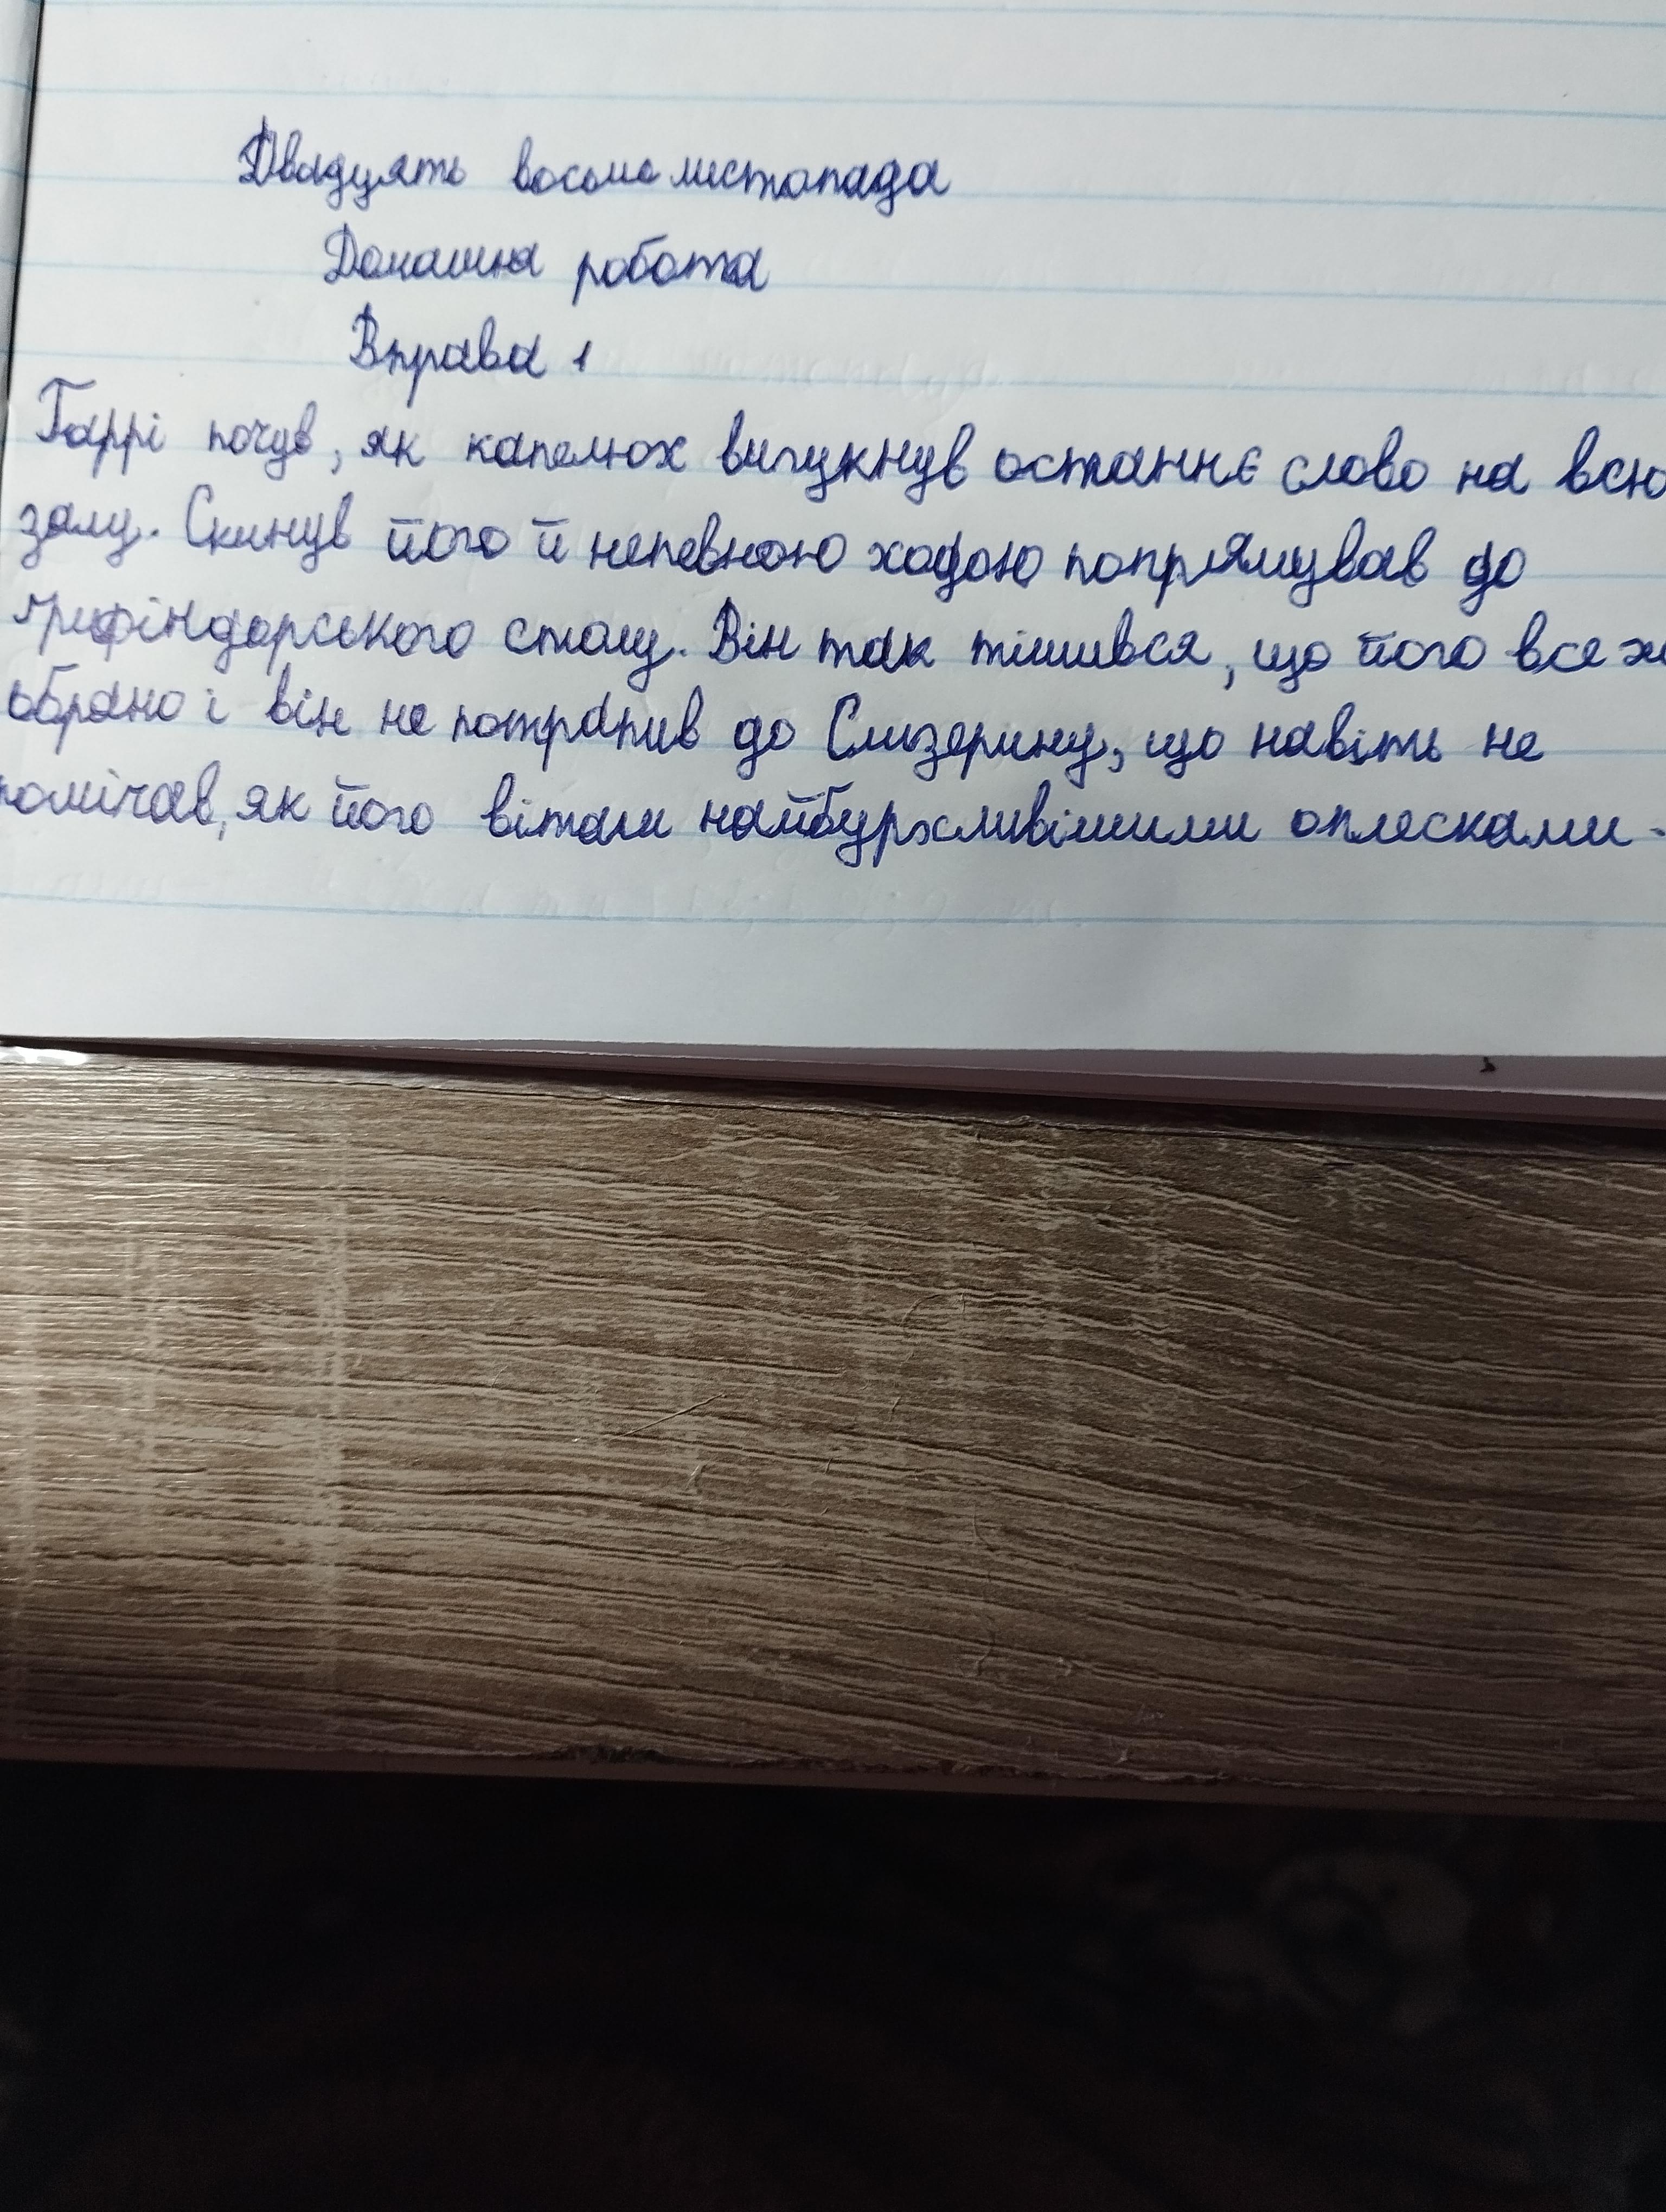 Двадцять восьме листопада
Домашня робота
Вправа 1
Гаррі почув, як капелюх вигукнув останнє слово на всю
залу. Скинув його й непевною ходою попрямував до
грифіндорського столу. Він так тішився, що його все ж
обрано і він не потрапив до Слизерину, що навіть не
помічав, як його вітали найбурхливішими оплесками.